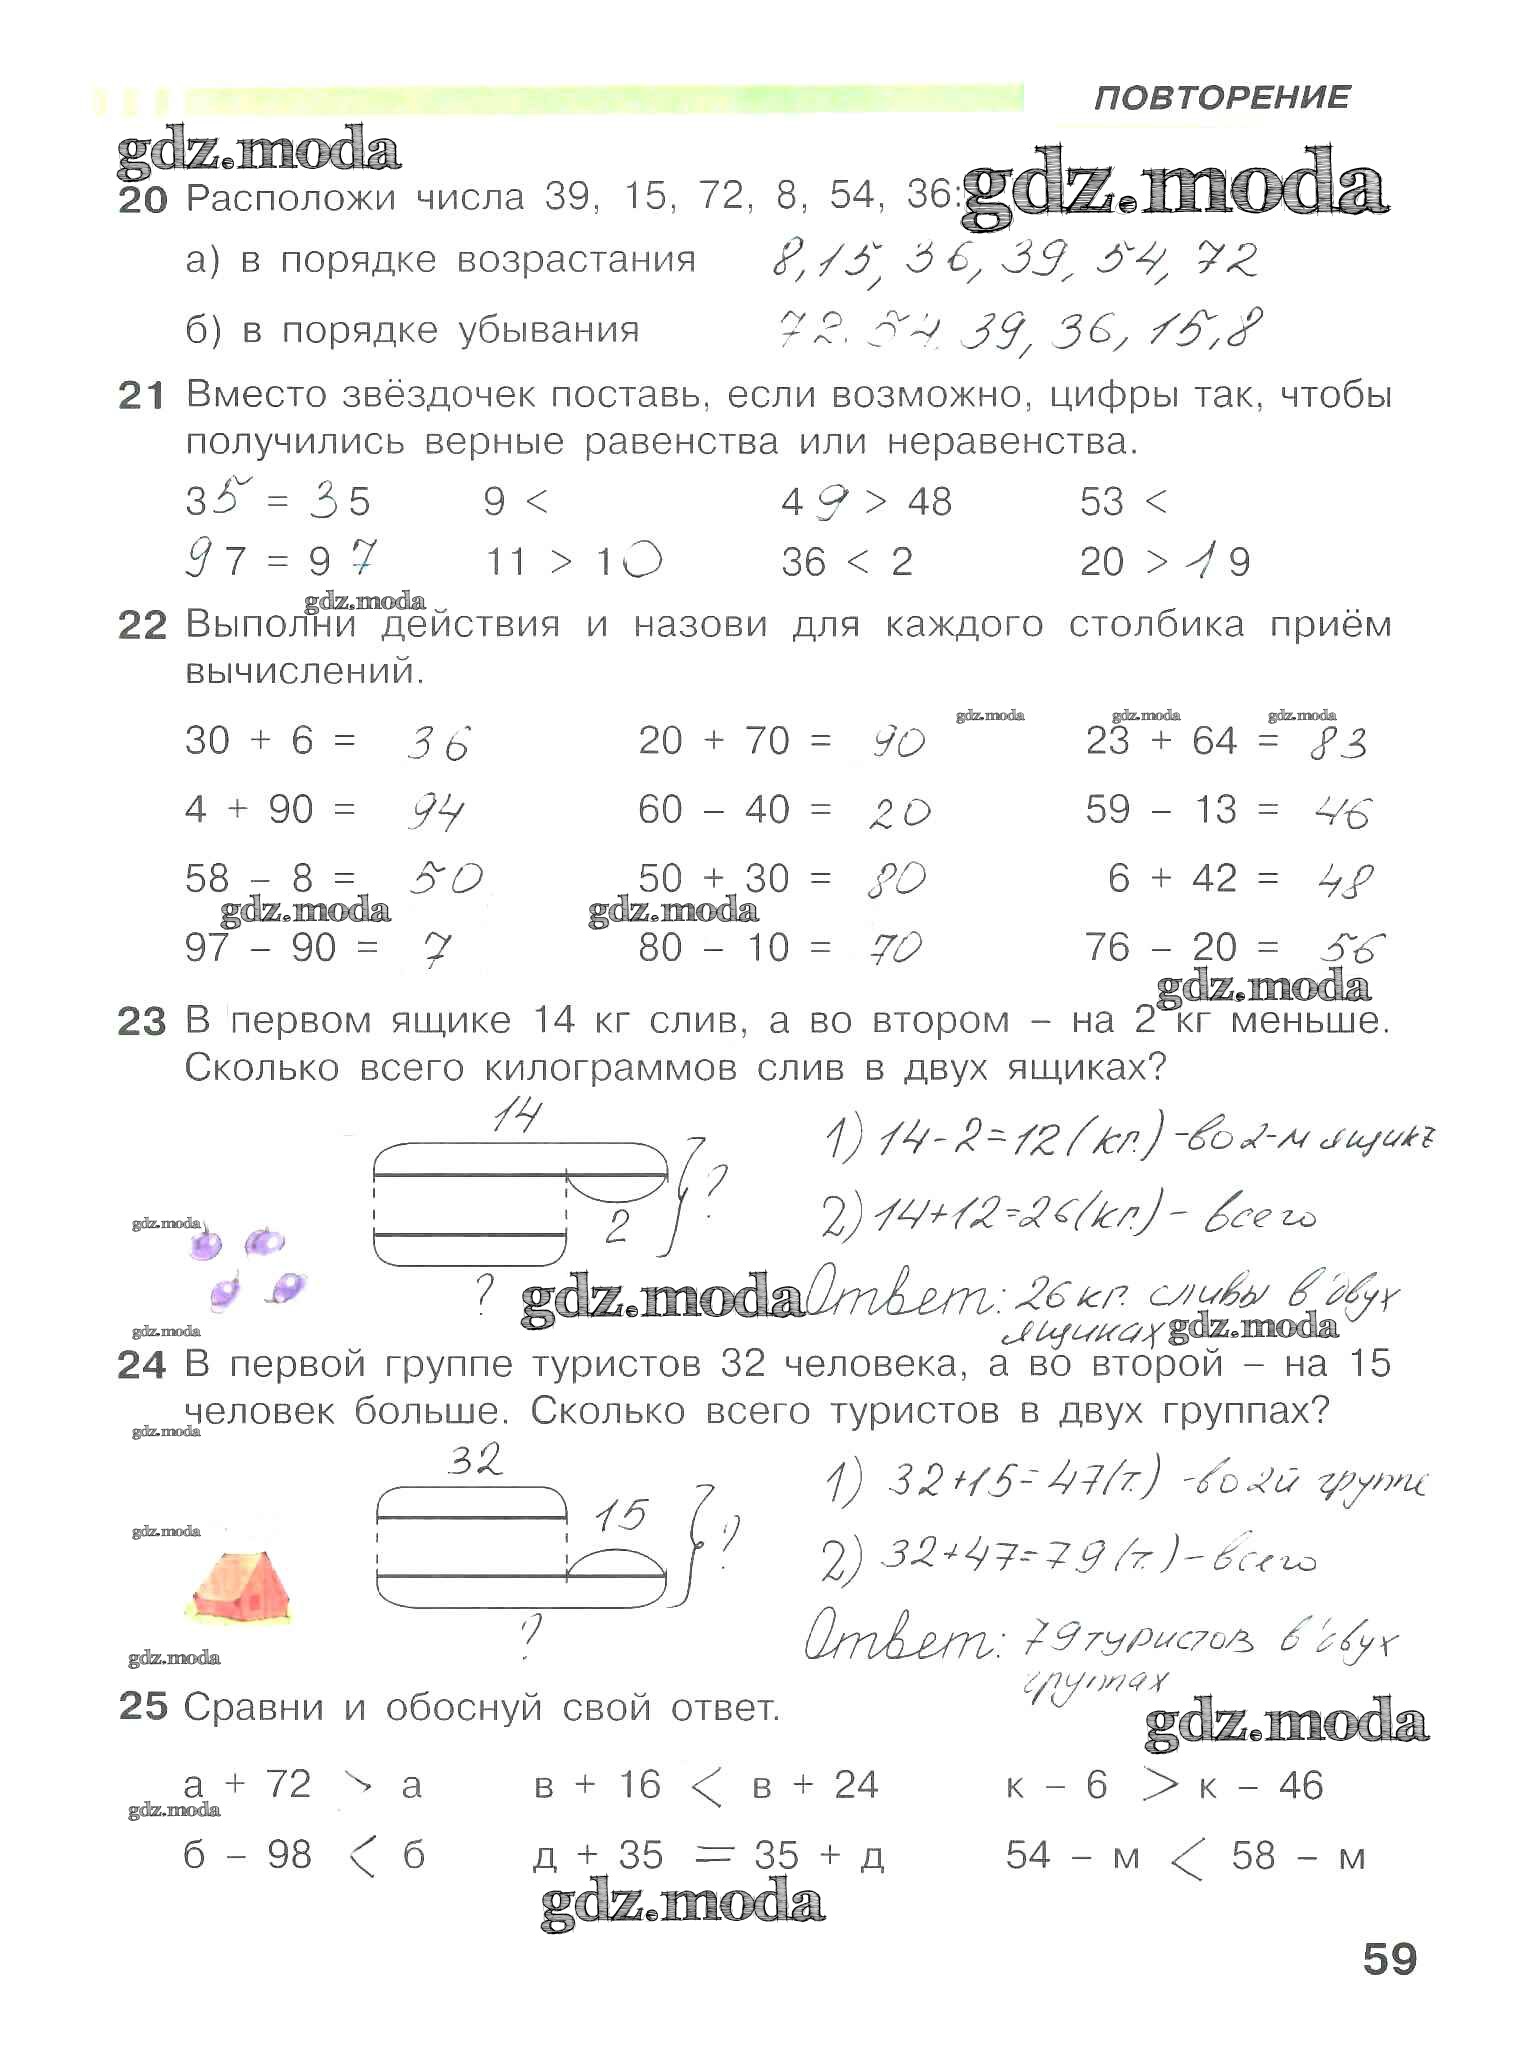 ПОВТОРЕНИЕ
gdz.moda
gdz.moda
20 Расположи числа 39, 15, 72, 8, 54, 36:
а) в порядке возрастания 8, 15, 36, 39, 54, 72
б) в порядке убывания 72. 54. 39, 36, 15, 8
21 Вместо звёздочек поставь, если возможно, цифры так, чтобы
получились верные равенства или неравенства.
35 = 35 9 < 49 > 48 53 <
97 = 97 11 > 10 36 < 2 20 > 19
gdz.moda
22 Выполни действия и назови для каждого столбика приём
вычислений.
gdz.moda gdz.moda gdz.moda
30 + 6 = 36 20 + 70 = 90 23 + 64 = 83
4 + 90 = 94 60 – 40 = 20 59 – 13 = 46
58 – 8 = 50 50 + 30 = 80 6 + 42 = 48
gdz.moda gdz.moda
97 – 90 = 7 80 – 10 = 70 76 – 20 = 56
gdz.moda
23 В первом ящике 14 кг слив, а во втором – на 2 кг меньше.
Сколько всего килограммов слив в двух ящиках?
14
1) 14-2=12 (кг.) -во 2-м ящике
?
2
2) 14+12=26(кг.) - всего
gdz.moda
? gdz.moda Ответ: 26 кг. сливы в двух
ящиках gdz.moda
gdz.moda
24 В первой группе туристов 32 человека, а во второй – на 15
человек больше. Сколько всего туристов в двух группах?
gdz.moda
32
1) 32+15=47(т.) -во 2й группе
15
?
gdz.moda
2) 32+47=79 (т.) - всего
?
Ответ: 79 туристов в двух
группах
gdz.moda
25 Сравни и обоснуй свой ответ.
gdz.moda
а + 72 > а в + 16 < в + 24 к – 6 > к – 46
gdz.moda
б – 98 < б д + 35 = 35 + д 54 – м < 58 – м
gdz.moda
59